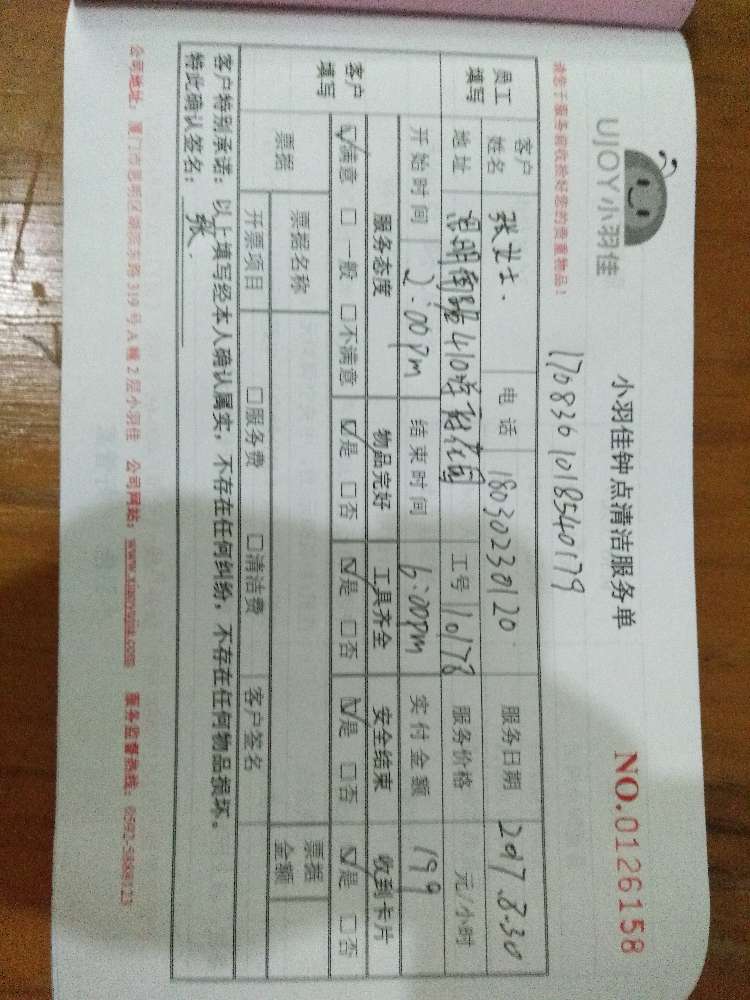 UJOY小羽佳
小羽佳钟点清洁服务单
NO.0126158
请您于服务前收捡好您的贵重物品!
1708361018540179
员工填写 客户姓名 张女士. 电话 18030230120 服务日期 2017.8.30
地址 思明南路410号 工号 110178 服务价格 元/小时
开始时间 2:00pm 结束时间 6:00pm 实付金额 199
客户填写 服务态度 物品完好 工具齐全 安全结束 收到卡片
☑满意 □一般 □不满意 ☑是 □否 ☑是 □否 ☑是 □否 ☑是 □否
票据 票据名称 票据金额
开票项目 □服务费 □清洁费 客户签名
客户特别承诺:以上填写经本人确认属实,不存在任何纠纷,不存在任何物品损坏。
特此确认签名: 张.
公司地址:厦门市思明区湖滨东路319号A幢2层小羽佳 公司网站:www.xiaoyujia.com 服务监督热线:0592-5888123